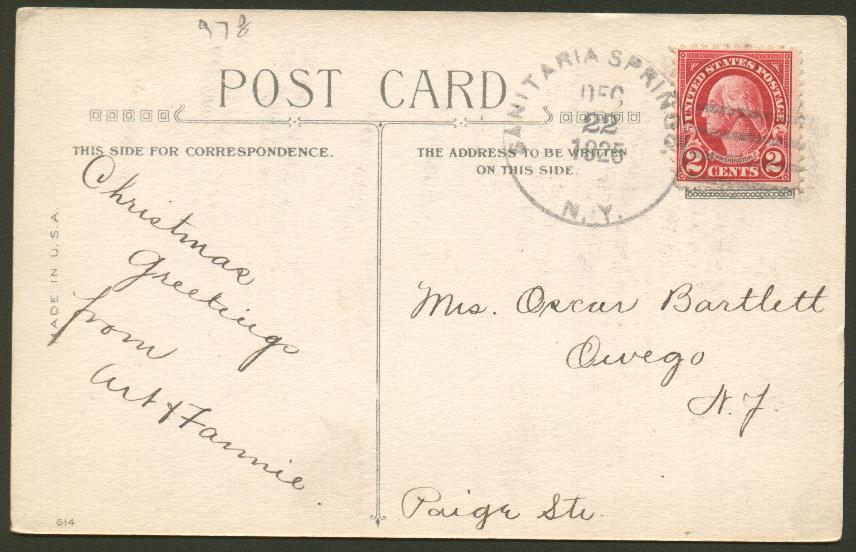 97 8
POST CARD
SANITARIA SPRINGS
DEC
22
1925
N.Y.
UNITED STATES POSTAGE
WASHINGTON
2 CENTS 2
THIS SIDE FOR CORRESPONDENCE.
THE ADDRESS TO BE WRITTEN
ON THIS SIDE.
MADE IN U.S.A.
Christmas
Greetings
from
Art & Fannie.
Mrs. Oscar Bartlett
Owego
N.Y.
Paige Str.
614